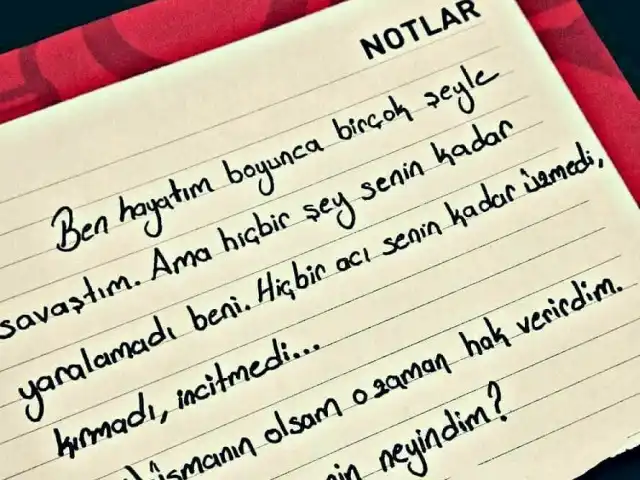 NOTLAR
Ben hayatım boyunca birçok şeyle
savaştım. Ama hiçbir şey senin kadar
yaralamadı beni. Hiçbir acı senin kadar üzmedi,
kırmadı, incitmedi...
olsam o zaman hak verirdim.
neyindim?